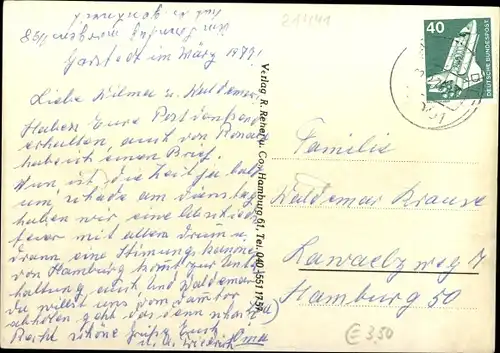 Garstedt im März 1979!
Liebe Wilma u. Waldemar
Haben Eure Post empfangen
erhalten, auch von Renate
habe ich einen Brief.
Nun, ist die Zeit ja bald
um, schade am Dienstag
haben wir eine Abschieds
feier mit allem drum u.
drann eine Stimungs kanone
von Hamburg kommt zur Unter
haltung, auch und Waldemar
Du willst uns vom Damtor
abholen geht das denn
Recht schöne Grüße Euch
Oma
Verlag R. Reher u. Co., Hamburg 61, Tel. 040/551 17 59
40
DEUTSCHE BUNDESPOST
Familie
Waldemar Krause
Hamburg 50
€ 3,50